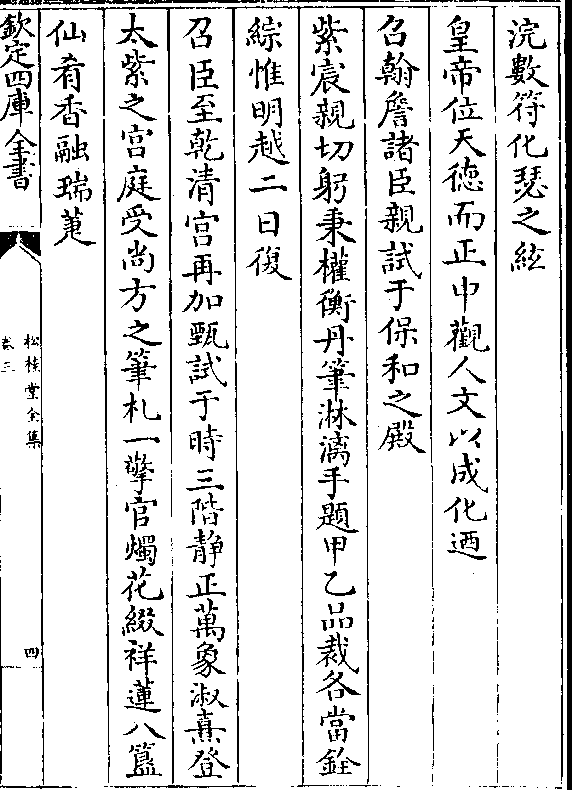 浣數符化瑟之絃
皇帝位天德而正中觀人文以成化迺
召翰詹諸臣親試于保和之殿
紫宸親切躬秉權衡丹筆淋漓手題甲乙品裁各當銓
綜惟明越二日復
召臣至乾清宫再加甄試于時三階靜正萬象淑熹登
太紫之宫庭受尚方之筆札一擎官燭花綴祥蓮八簋
仙肴香融瑞萐
欽定四庫全書
松桂堂全集
卷三
四